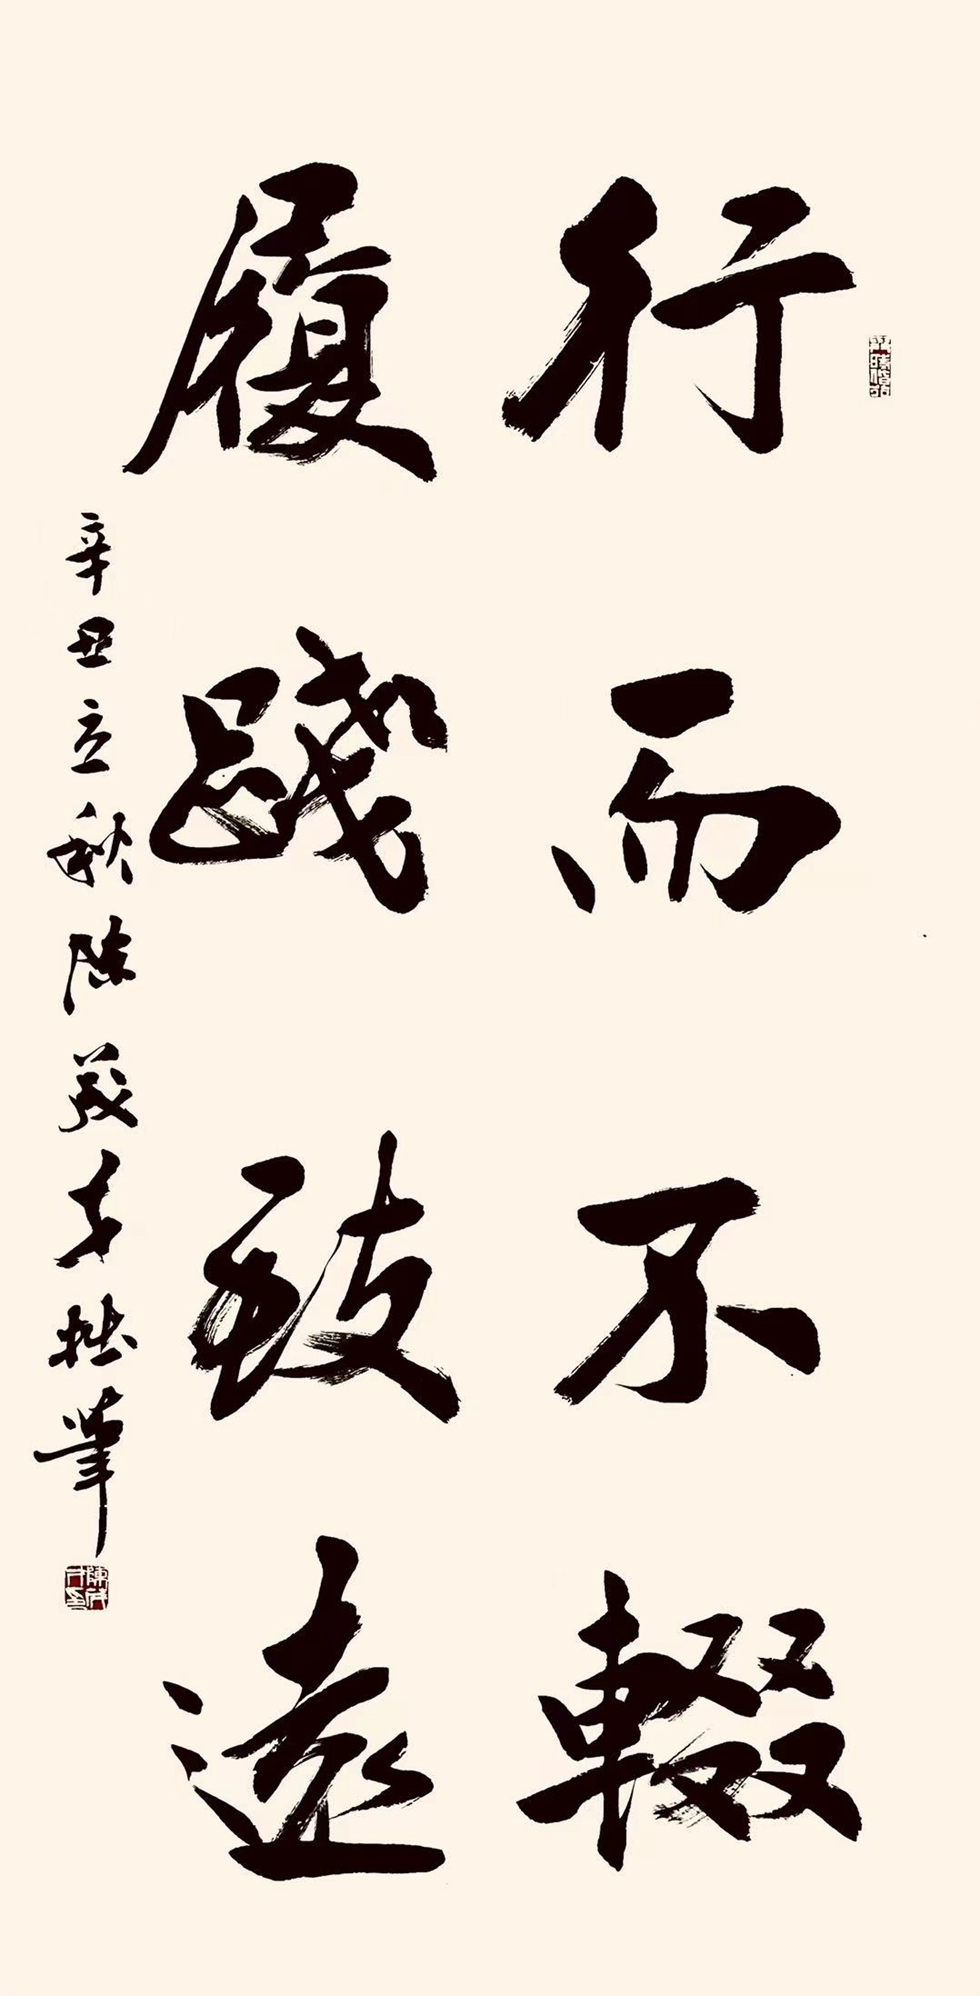 行而不輟
履踐致遠
辛丑立秋陳義才拙筆